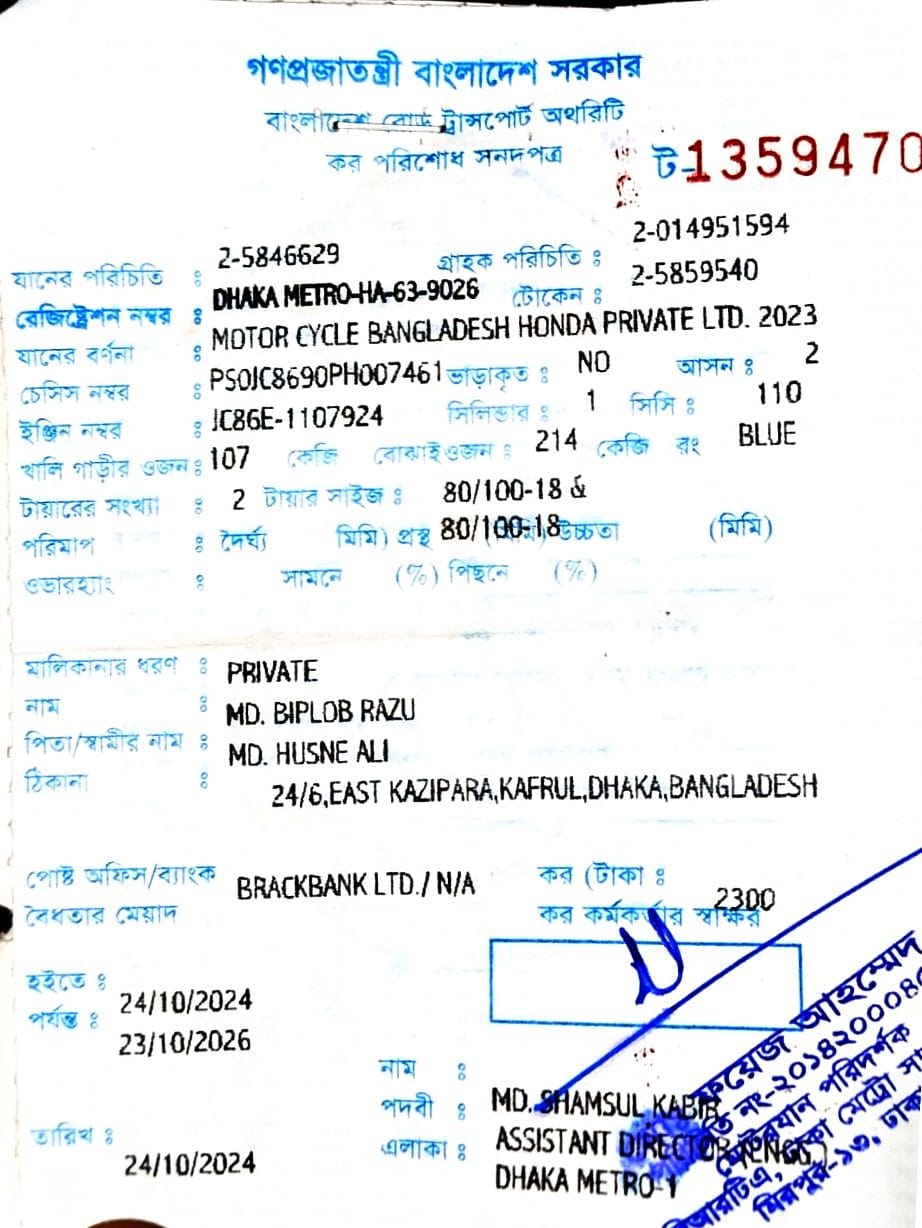 গণপ্রজাতন্ত্রী বাংলাদেশ সরকার
বাংলাদেশ রোড ট্রান্সপোর্ট অথরিটি
কর পরিশোধ সনদপত্র
ট-1359470
যানের পরিচিতি : 2-5846629 গ্রাহক পরিচিতি : 2-014951594
রেজিষ্ট্রেশন নম্বর : DHAKA METRO-HA-63-9026 টোকেন : 2-5859540
যানের বর্ণনা : MOTOR CYCLE BANGLADESH HONDA PRIVATE LTD. 2023
চেসিস নম্বর : PS0JC8690PH007461 ভাড়াকৃত : NO আসন : 2
ইঞ্জিন নম্বর : JC86E-1107924 সিলিন্ডার : 1 সিসি : 110
খালি গাড়ীর ওজন : 107 কেজি বোঝাই ওজন : 214 কেজি রং BLUE
টায়ারের সংখ্যা : 2 টায়ার সাইজ : 80/100-18 &
80/100-18
পরিমাপ : দৈর্ঘ্য মিমি) প্রস্থ (মিমি) উচ্চতা (মিমি)
ওভারহ্যাং : সামনে (%) পিছনে (%)
মালিকানার ধরণ : PRIVATE
নাম : MD. BIPLOB RAZU
পিতা/স্বামীর নাম : MD. HUSNE ALI
ঠিকানা : 24/6,EAST KAZIPARA,KAFRUL,DHAKA,BANGLADESH
পোষ্ট অফিস/ব্যাংক BRACKBANK LTD./ N/A কর (টাকা : 2300
বৈধতার মেয়াদ কর কর্মকর্তার স্বাক্ষর
হইতে : 24/10/2024
পর্যন্ত : 23/10/2026
নাম : MD. SHAMSUL KABIR
পদবী : ASSISTANT DIRECTOR (ENGG.)
এলাকা : DHAKA METRO-1
তারিখ : 24/10/2024
ফয়েজ আহম্মেদ
নং-২০১৪২০০০৪
মোটরযান পরিদর্শক
বিআরটিএ, ঢাকা মেট্রো সা
মিরপুর-১৩, ঢাকা